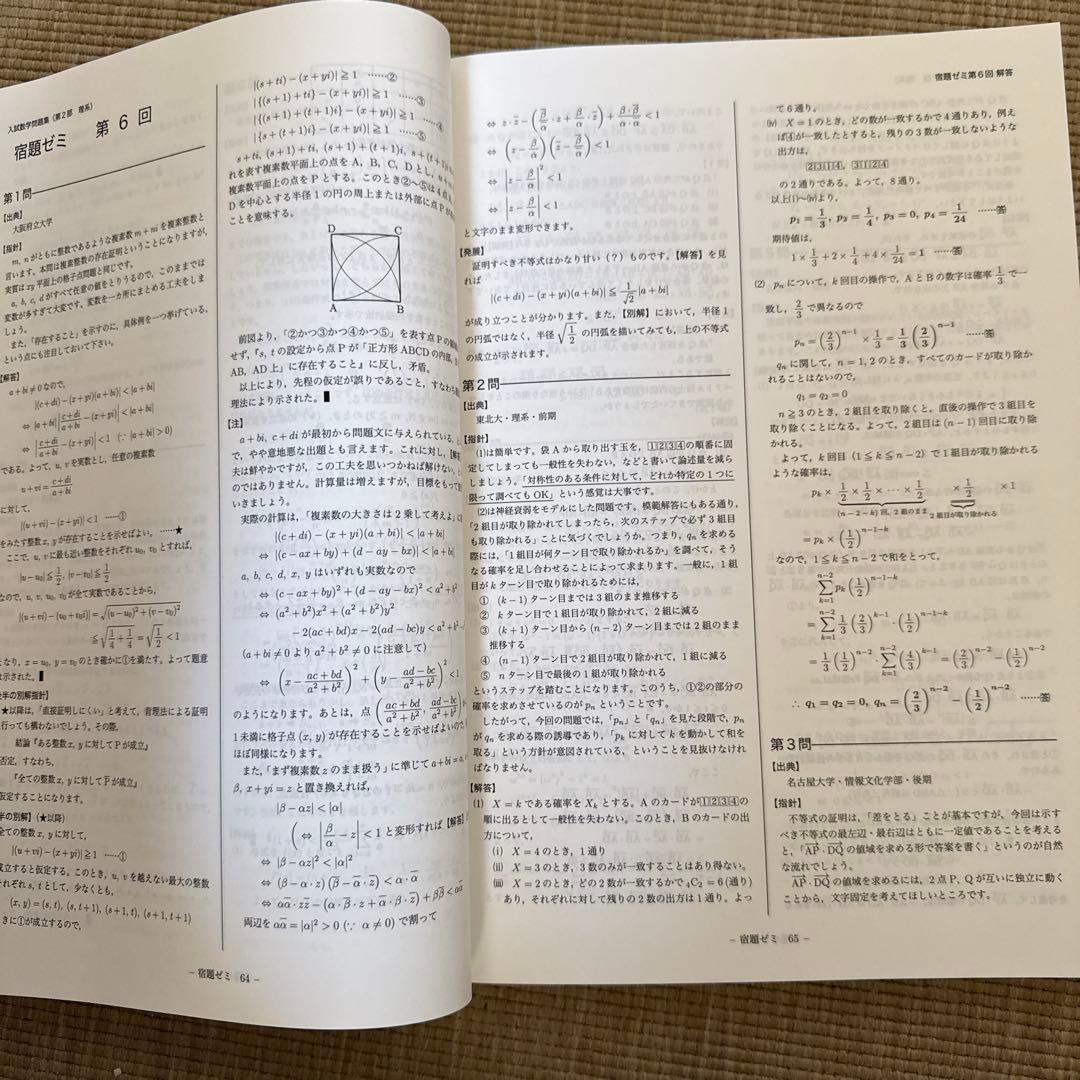 入試数学問題集（第2部 理系）
宿題ゼミ 第6回
第1問
【出典】
大阪府立大学
【指針】
m, nがともに整数であるような複素数m+niを複素整数と
言います。本問は複素整数の存在証明ということになりますが,
実質はxy平面上の格子点問題と同じです。
a, b, c, dがすべて任意の値をとりうるので, このままでは
変数が多すぎて大変です。変数を一カ所にまとめる工夫をしま
しょう。
また,「存在すること」を示すのに, 具体例を一つ挙げている,
という点にも注目しておいて下さい。
【解答】
a+bi≠0なので,
|(c+di)-(x+yi)(a+bi)|<|a+bi|
⇔ |a+bi||(c+di)/(a+bi)-(x+yi)|<|a+bi|
⇔ |(c+di)/(a+bi)-(x+yi)|<1 (∵ |a+bi|>0)
である。よって, u, vを実数とし, 任意の複素数
u+vi=(c+di)/(a+bi)
に対して,
|(u+vi)-(x+yi)|<1 ……①
をみたす整数x, yが存在することを示せばよい。 ……★
ここで, u, vに最も近い整数をそれぞれu₀, v₀とすれば,
|u-u₀|≦1/2, |v-v₀|≦1/2
なので, u, v, u₀, v₀が全て実数であることから,
|(u+vi)-(u₀+v₀i)|=√((u-u₀)²+(v-v₀)²)
≦√(1/4+1/4)=√(1/2)<1
となり, x=u₀, y=v₀のとき確かに①を満たす。よって題意
は示された。∎
後半の別解指針】
★以降は,「直接証明しにくい」と考えて, 背理法による証明
行っても構わないでしょう。その際,
結論『ある整数x, yに対してPが成立』
否定, すなわち,
『全ての整数x, yに対してP̄が成立』
仮定することになります。
半の別解】(★以降)
全ての整数x, yに対して,
|(u+vi)-(x+yi)|≧1 ……①
成立すると仮定する。このとき, u, vを越えない最大の整数
それぞれs, tとして, 少なくとも,
(x, y)=(s, t), (s, t+1), (s+1, t), (s+1, t+1)
きに①が成立するので,
|(s+ti)-(x+yi)|≧1 ……②
|{(s+1)+ti}-(x+yi)|≧1 ……③
|{(s+1)+(t+1)i}-(x+yi)|≧1 ……④
|{s+(t+1)i}-(x+yi)|≧1 ……⑤
s+ti, (s+1)+ti, (s+1)+(t+1)i, s+(t+1)i
れを表す複素数平面上の点をA, B, C, Dとし,
複素数平面上の点をPとする。このとき②〜⑤は4点
Dを中心とする半径1の円の周上または外部に点Pが
ことを意味する。
D C
A B
前図より,「②かつ③かつ④かつ⑤」を表す点Pの
せず,『s, tの設定から点Pが「正方形ABCDの内部,
AB, AD上」に存在すること』に反し, 矛盾。
以上により, 先程の仮定が誤りであること, すなわち
理法により示された。∎
【注】
a+bi, c+diが最初から問題文に与えられている
で, やや意地悪な出題とも言えます。これに対し,【解答】
夫は鮮やかですが, この工夫を思いつかねば解けない,
のではありません。計算量は増えますが, 目標をもって
いきましょう。
実際の計算は,「複素数の大きさは2乗して考えよ」
|(c+di)-(x+yi)(a+bi)|<|a+bi|
⇔ |(c-ax+by)+(d-ay-bx)i|<|a+bi|
a, b, c, d, x, yはいずれも実数なので
⇔ (c-ax+by)²+(d-ay-bx)²<a²+b²
⇔ (a²+b²)x²+(a²+b²)y²
-2(ac+bd)x-2(ad-bc)y<a²+b²
(a+bi≠0よりa²+b²≠0に注意して)
⇔ (x-(ac+bd)/(a²+b²))²+(y-(ad-bc)/(a²+b²))²<1
のようになります。あとは, 点((ac+bd)/(a²+b²), (ad-bc)/(a²+b²))
1未満に格子点(x, y)が存在することを示せばよいので
ほぼ同様になります。
また,「まず複素数zのまま扱う」に準じてa+bi=α,
β, x+yi=zと置き換えれば,
|β-αz|<|α|
(⇔ |β/α-z|<1と変形すれば【解答】
⇔ |β-αz|²<|α|²
⇔ (β-α·z)(β̄-ᾱ·z̄)<α·ᾱ
⇔ αᾱ·zz̄-(α·β̄·z+ᾱ·β·z̄)+ββ̄<αᾱ
両辺をαᾱ=|α|²>0 (∵ α≠0)で割って
– 宿題ゼミ 64 –
⇔ z·z̄-(β̄/ᾱ·z+β/α·z̄)+(β·β̄)/(α·ᾱ)<1
⇔ (z-β/α)(z̄-β̄/ᾱ)<1
⇔ |z-β/α|²<1
⇔ |z-β/α|<1
と文字のまま変形できます。
【発展】
証明すべき不等式はかなり甘い（？）ものです。【解答】を見
れば
|(c+di)-(x+yi)(a+bi)|≦1/√2|a+bi|
が成り立つことが分かります。また,【別解】において, 半径1
の円弧ではなく, 半径√(1/2)の円弧を描いてみても, 上の不等式
の成立が示されます。
第2問
【出典】
東北大・理系・前期
【指針】
(1)は簡単です。袋Aから取り出す玉を, 1234の順番に固
定してしまっても一般性を失わない, などと書いて論述量を減ら
しましょう。「対称性のある条件に対して, どれか特定の1つに
限って調べてもOK」という感覚は大事です。
(2)は神経衰弱をモデルにした問題です。模範解答にもある通り,
「2組目が取り除かれてしまったら, 次のステップで必ず3組目
も取り除かれる」ことに気づくでしょうか。つまり, qₙを求める
際には,「1組目が何ターン目で取り除かれるか」を調べて, そう
なる確率を足し合わせることによって求まります。一般に, 1組
目がkターン目で取り除かれるためには,
① (k-1)ターン目までは3組のまま推移する
② kターン目で1組目が取り除かれて, 2組に減る
③ (k+1)ターン目から(n-2)ターン目までは2組のまま
推移する
④ (n-1)ターン目で2組目が取り除かれて, 1組に減る
⑤ nターン目で最後の1組が取り除かれる
というステップを踏むことになります。このうち, ①②の部分の
確率を求めさせているのがpₙということです。
したがって, 今回の問題では,「pₙ」と「qₙ」を見た段階で, pₙ
がqₙを求める際の誘導であり,「pₖに対してkを動かして和を
取る」という方針が意図されている, ということを見抜けなけれ
ばなりません。
【解答】
(1) X=kである確率をXₖとする。Aのカードが1234の
順に出るとして一般性を失わない。このとき, Bのカードの出
方について,
(i) X=4のとき, 1通り
(ii) X=3のとき, 3数のみが一致することはあり得ない。
(iii) X=2のとき, どの2数が一致するかで₄C₂=6(通り)
あり, それぞれに対して残りの2数の出方は1通り。よっ
– 宿題ゼミ 65 –
宿題ゼミ第6回 解答
て6通り。
(iv) X=1のとき, どの数が一致するかで4通りあり, 例え
ば4が一致したとすると, 残りの3数が一致しないような
出方は,
2314, 3124
の2通りである。よって, 8通り。
以上(i)〜(iv)より,
p₁=1/3, p₂=1/4, p₃=0, p₄=1/24 ……答
期待値は,
1×1/3+2×1/4+4×1/24=1 ……答
(2) pₙについて, k回目の操作で, AとBの数字は確率1/3で一
致し, 2/3で異なるので
pₙ=(2/3)ⁿ⁻¹×1/3=1/3(2/3)ⁿ⁻¹ ……答
qₙに関して, n=1, 2のとき, すべてのカードが取り除か
れることはないので,
q₁=q₂=0
n≧3のとき, 2組目を取り除くと, 直後の操作で3組目を
取り除くことになる。よって, 2組目は(n-1)回目に取り除
かれる。
よって, k回目(1≦k≦n-2)で1組目が取り除かれる
ような確率は,
pₖ×1/2×1/2×···×1/2×1/2×1
(n-2-k)回, 2組のまま 2組目が取り除かれる
=pₖ×(1/2)ⁿ⁻¹⁻ᵏ
なので, 1≦k≦n-2で和をとって,
Σ[k=1, n-2] pₖ(1/2)ⁿ⁻¹⁻ᵏ
=Σ[k=1, n-2] 1/3(2/3)ᵏ⁻¹·(1/2)ⁿ⁻¹⁻ᵏ
=1/3(1/2)ⁿ⁻²·Σ[k=1, n-2](4/3)ᵏ⁻¹=(2/3)ⁿ⁻²-(1/2)ⁿ⁻²
∴ q₁=q₂=0, qₙ=(2/3)ⁿ⁻²-(1/2)ⁿ⁻² ……答
第3問
【出典】
名古屋大学・情報文化学部・後期
【指針】
不等式の証明は,「差をとる」ことが基本ですが, 今回は示す
べき不等式の最左辺・最右辺はともに一定値であることを考える
と,「AP→·DQ→の値域を求める形で答案を書く」というのが自然
な流れでしょう。
AP→·DQ→の値域を求めるには, 2点P, Qが互いに独立に動く
ことから, 文字固定を考えてほしいところです。